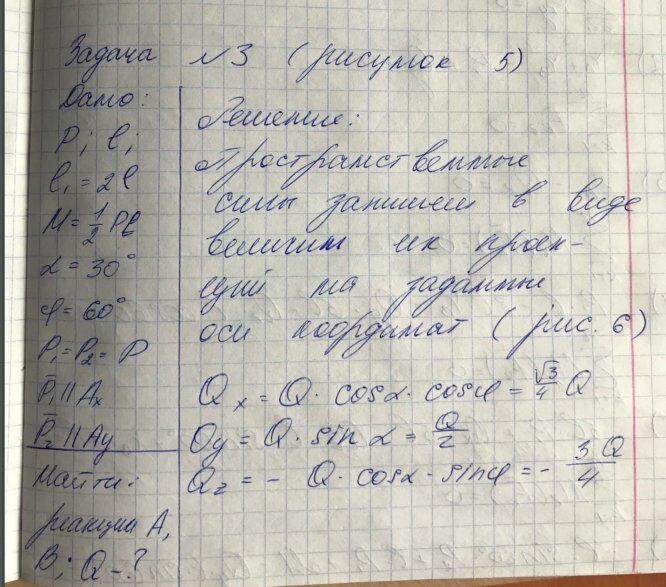 Задача №3 (рисунок 5)
Дано:
P; l;
l₁ = 2l
M = 1/2 Pl
α = 30°
φ = 60°
P₁ = P₂ = P
P̄₁ || Ax
P̄₂ || Ay
Найти:
реакции A,
B; Q - ?
Решение:
Пространственные
силы запишем в виде
величин их проек-
ций на заданные
оси координат (рис. 6)
Qx = Q · cosα · cosφ = √3/4 Q
Qy = Q · sin α = Q/2
Qz = - Q · cosα · sinφ = - 3Q/4